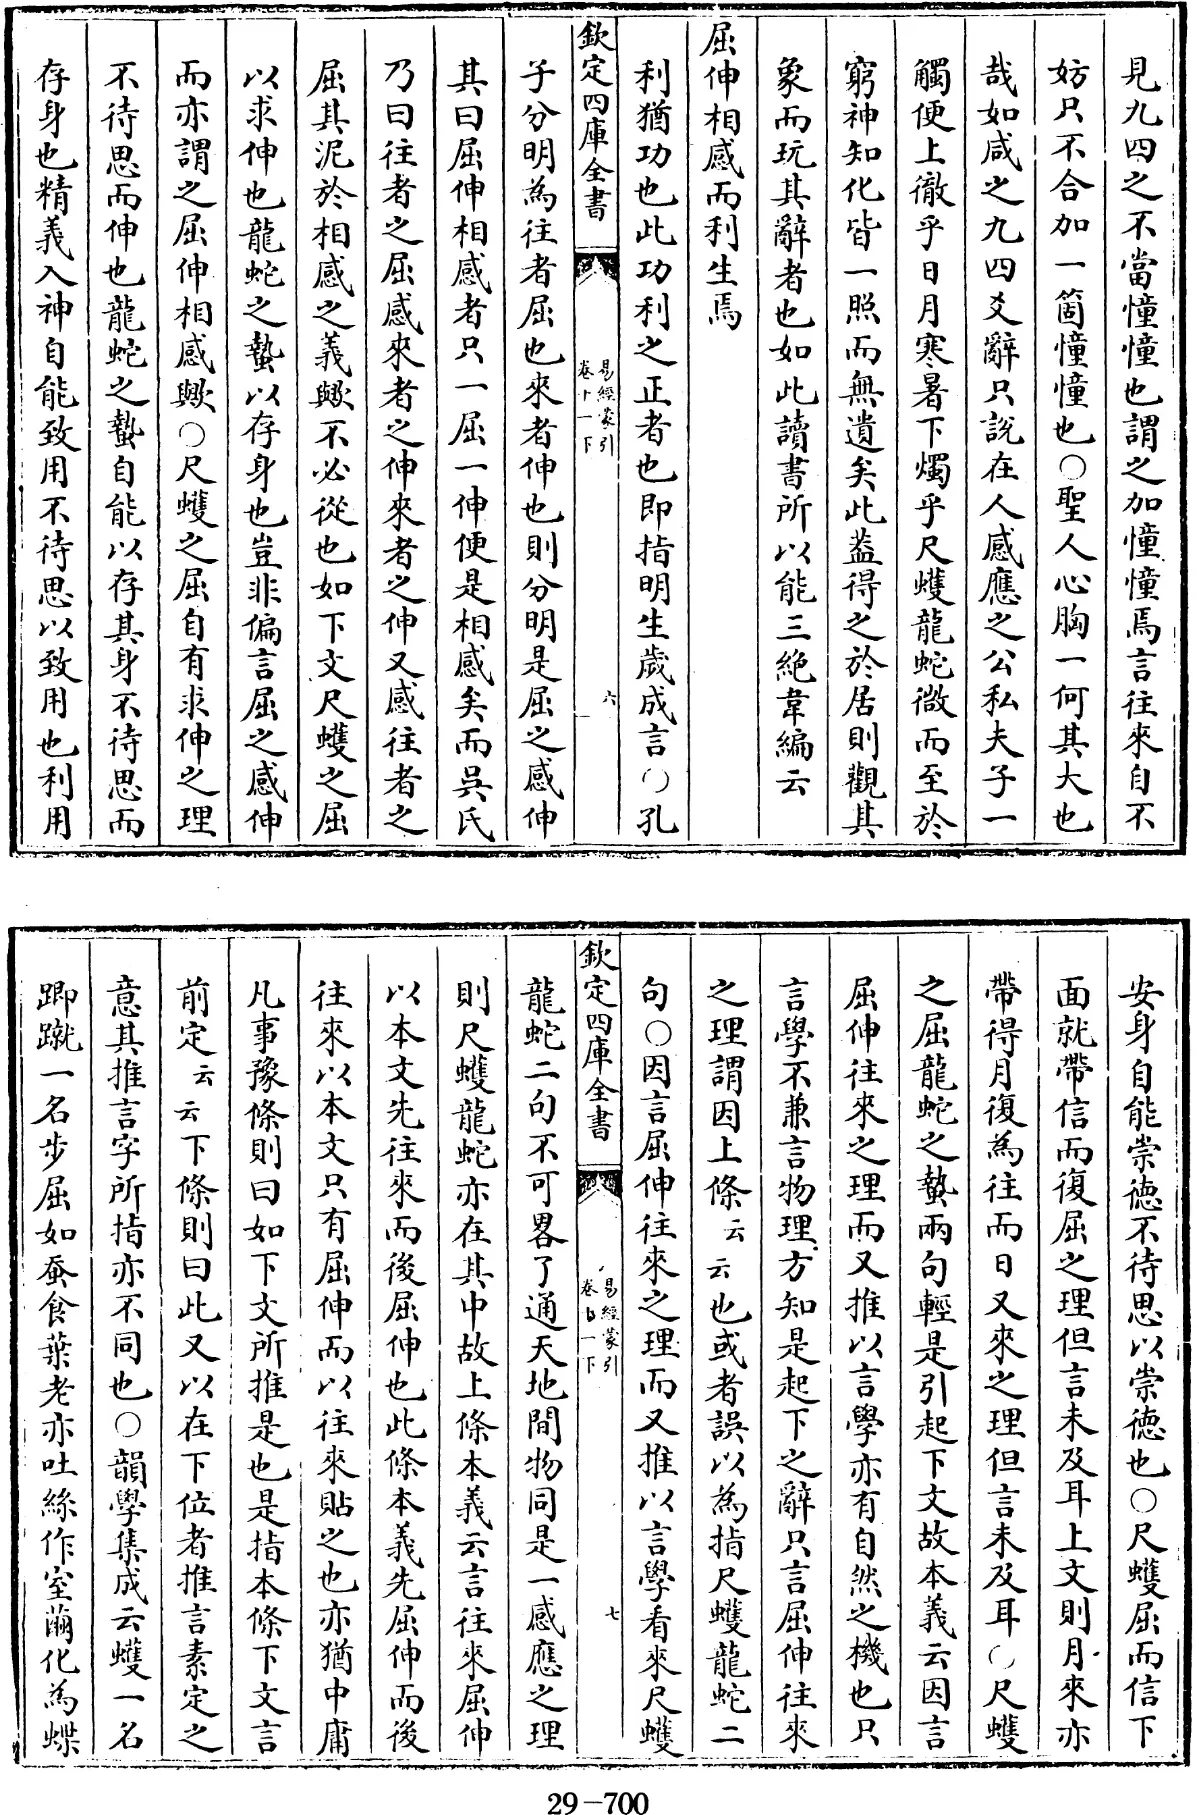 見九四之不當憧憧也謂之加憧憧焉言往來自不
妨只不合加一箇憧憧也○聖人心胸一何其大也
哉如咸之九四爻辭只說在人感應之公私夫子一
觸便上徹乎日月寒暑下燭乎尺蠖龍蛇微而至於
窮神知化皆一照而無遺矣此葢得之於居則觀其
象而玩其辭者也如此讀書所以能三絶韋編云
屈伸相感而利生焉
利猶功也此功利之正者也即指明生歲成言○孔
欽定四庫全書
易經蒙引
卷十一下
六
子分明為往者屈也來者伸也則分明是屈之感伸
其曰屈伸相感者只一屈一伸便是相感矣而吳氏
乃曰往者之屈感來者之伸來者之伸又感往者之
屈其泥於相感之義歟不必從也如下文尺蠖之屈
以求伸也龍蛇之蟄以存身也豈非偏言屈之感伸
而亦謂之屈伸相感歟○尺蠖之屈自有求伸之理
不待思而伸也龍蛇之蟄自能以存其身不待思而
存身也精義入神自能致用不待思以致用也利用
安身自能崇德不待思以崇德也○尺蠖屈而信下
面就帶信而復屈之理但言未及耳上文則月來亦
帶得月復為往而日又來之理但言未及耳○尺蠖
之屈龍蛇之蟄兩句輕是引起下文故本義云因言
屈伸往來之理而又推以言學亦有自然之機也只
言學不兼言物理方知是起下之辭只言屈伸往來
之理謂因上條云云也或者誤以為指尺蠖龍蛇二
句○因言屈伸往來之理而又推以言學看來尺蠖
欽定四庫全書
易經蒙引
卷十一下
七
龍蛇二句不可畧了通天地間物同是一感應之理
則尺蠖龍蛇亦在其中故上條本義云言往來屈伸
以本文先往來而後屈伸也此條本義先屈伸而後
往來以本文只有屈伸而以往來貼之也亦猶中庸
凡事豫條則曰如下文所推是也是指本條下文言
前定云云下條則曰此又以在下位者推言素定之
意其推言字所指亦不同也○韻學集成云蠖一名
蝍蹴一名步屈如蚕食葉老亦吐絲作室繭化為蝶
29-700